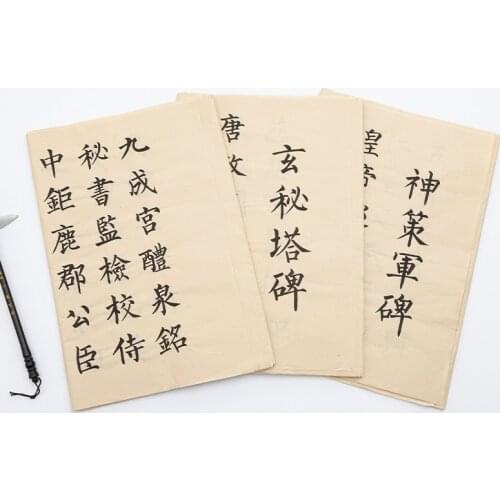 九成宮醴泉銘
秘書監檢校侍
中鉅鹿郡公臣
玄秘塔碑
唐故
神策軍碑
皇帝